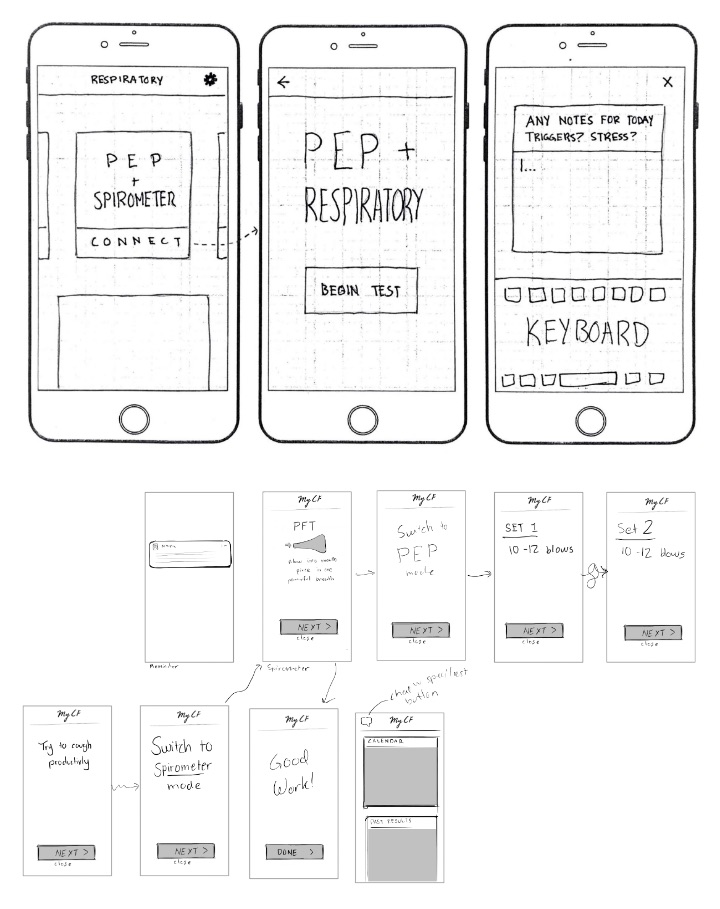 RESPIRATORY
PEP
+
SPIROMETER
CONNECT
PEP +
RESPIRATORY
BEGIN TEST
X
ANY NOTES FOR TODAY
TRIGGERS? STRESS?
I...
KEYBOARD
Reminder
MyCF
PFT
blow into mouth
piece in one
powerful breath
NEXT >
close
Spirometer
MyCF
Switch to
PEP
mode
NEXT >
close
MyCF
SET 1
10-12 blows
NEXT >
close
MyCF
Set 2
10-12 blows
NEXT >
close
MyCF
Try to cough
productively
NEXT >
close
MyCF
Switch to
Spirometer
mode
NEXT >
close
MyCF
Good
Work!
DONE >
chat w specialist
button
MyCF
CALENDAR
PAST RESULTS